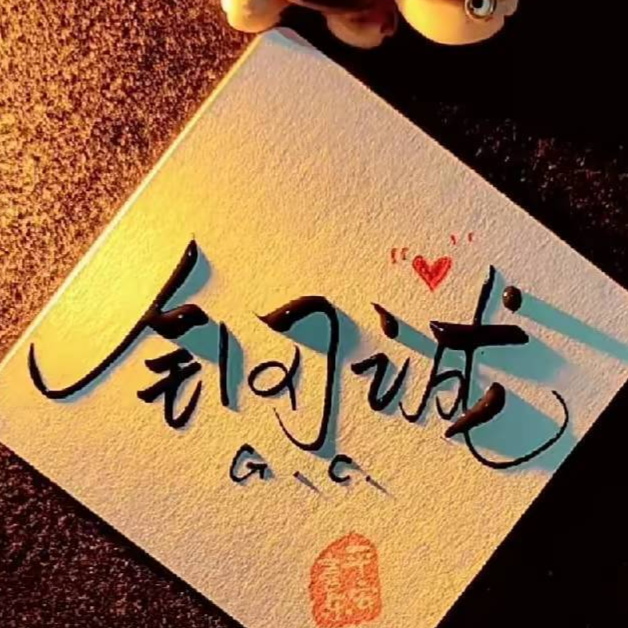 钢诚
G. C.